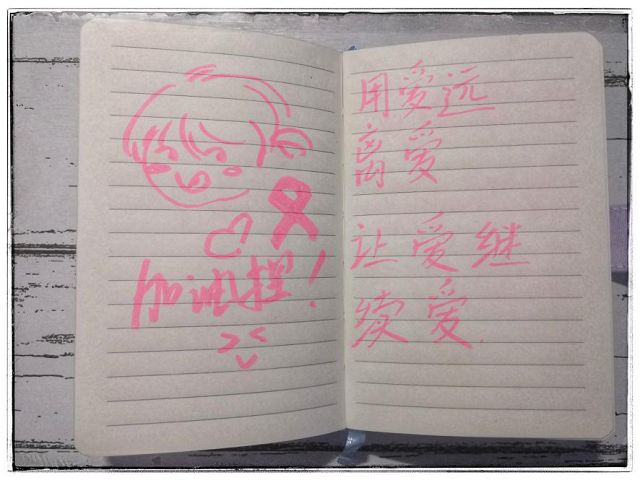 加油捏！
用爱远
离爱
让爱继
续爱